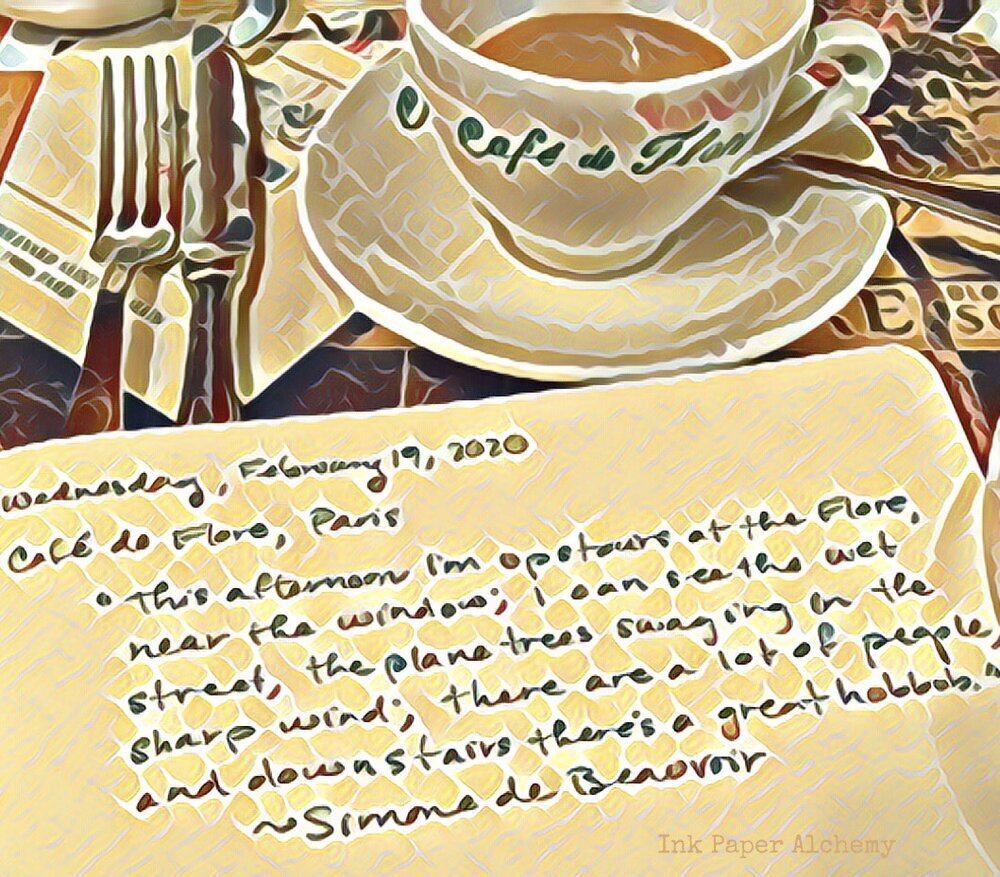 Café de Flor
Wednesday, February 19, 2020
Café de Flore, Paris
" This afternoon I'm upstairs at the Flore,
near the window; I can see the wet
street, the plane trees swaying in the
sharp wind; there are a lot of people,
and downstairs there's a great hubbub."
~Simone de Beauvoir
Ink Paper Alchemy